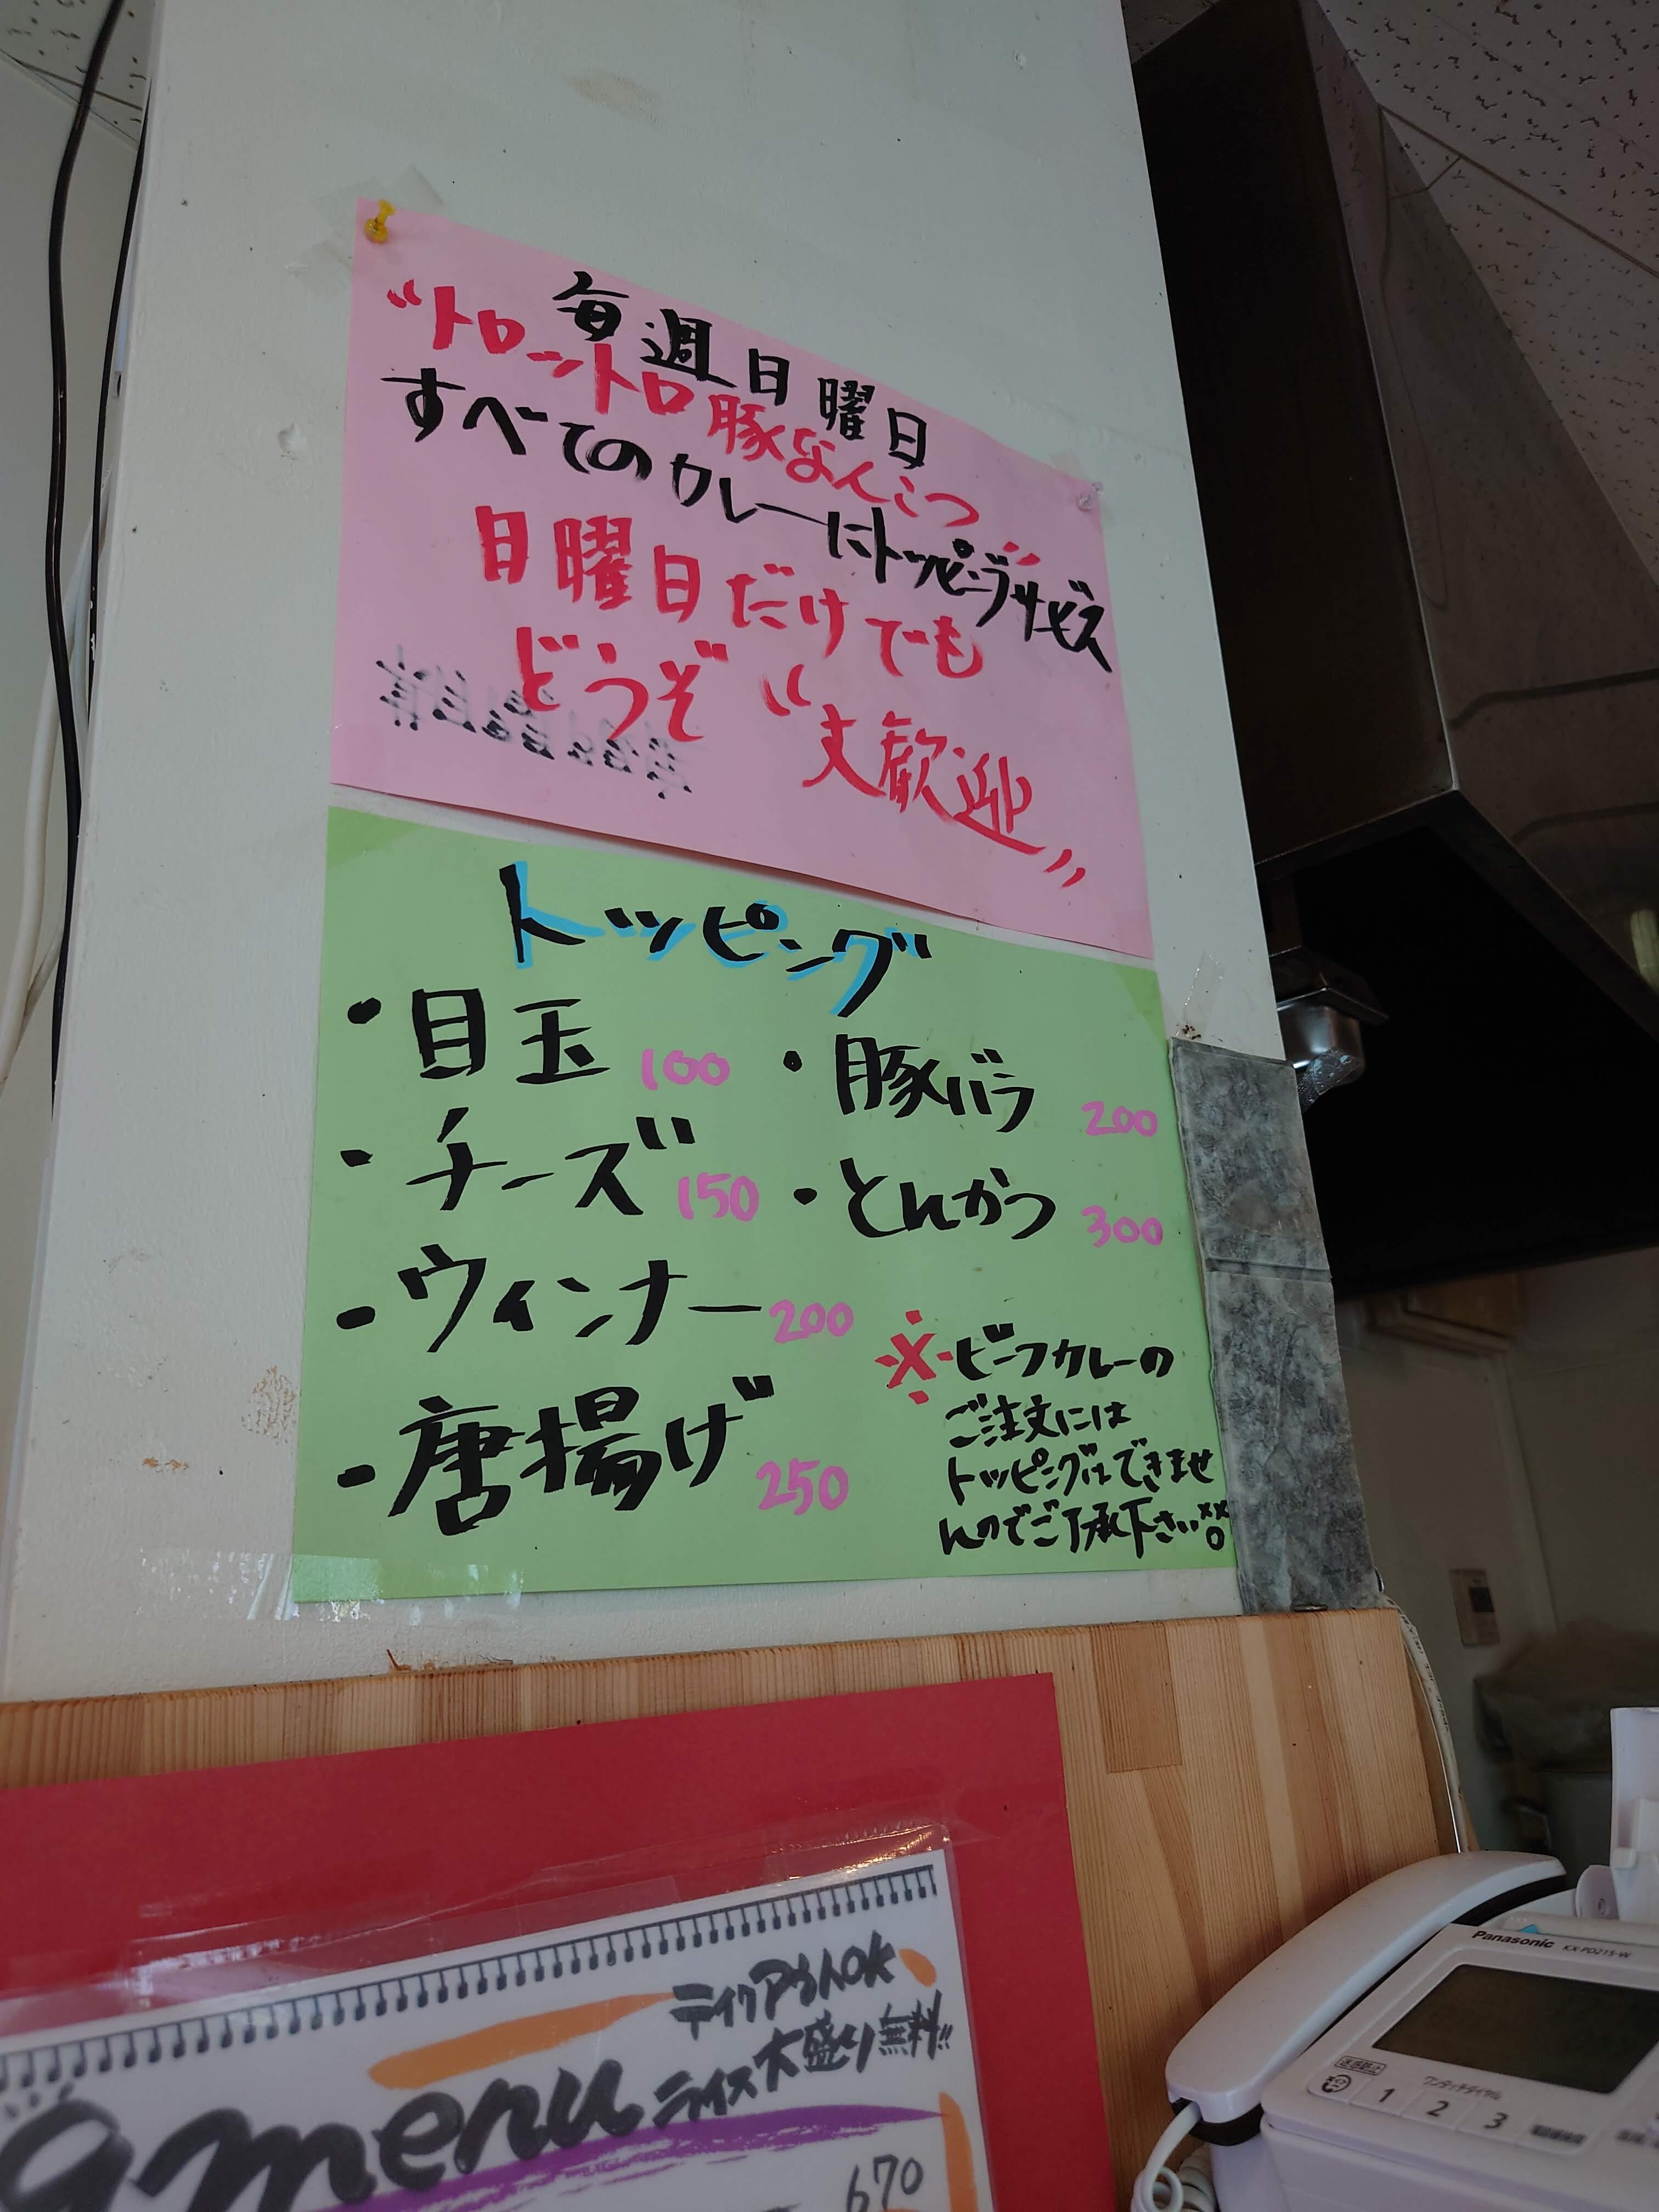 毎週日曜日
“トロットロ豚なんこつ”
すべてのカレーにトッピングサービス
日曜日だけでも
どうぞ “大歓迎”
トッピング
・目玉 100
・チーズ 150
・ウィンナー 200
・唐揚げ 250
・豚バラ 200
・とんかつ 300
※ビーフカレーの
ご注文には
トッピングはできませ
んのでご了承下さい。
テイクアウトOK
ライス大盛り無料!!
menu
670
Panasonic KX-PD215-W
ワンタッチダイヤル
1 2 3